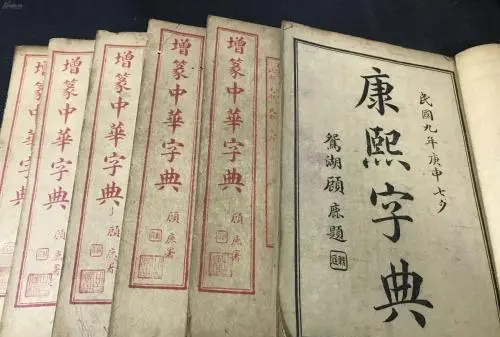 民國九年庚申七夕
康熙字典
鴛湖顧廉題
增篆中華字典
顧廉署
增篆中華字典
顧廉署
增篆中華字典
顧廉署
增篆中華字典
顧廉署
增篆中華字典